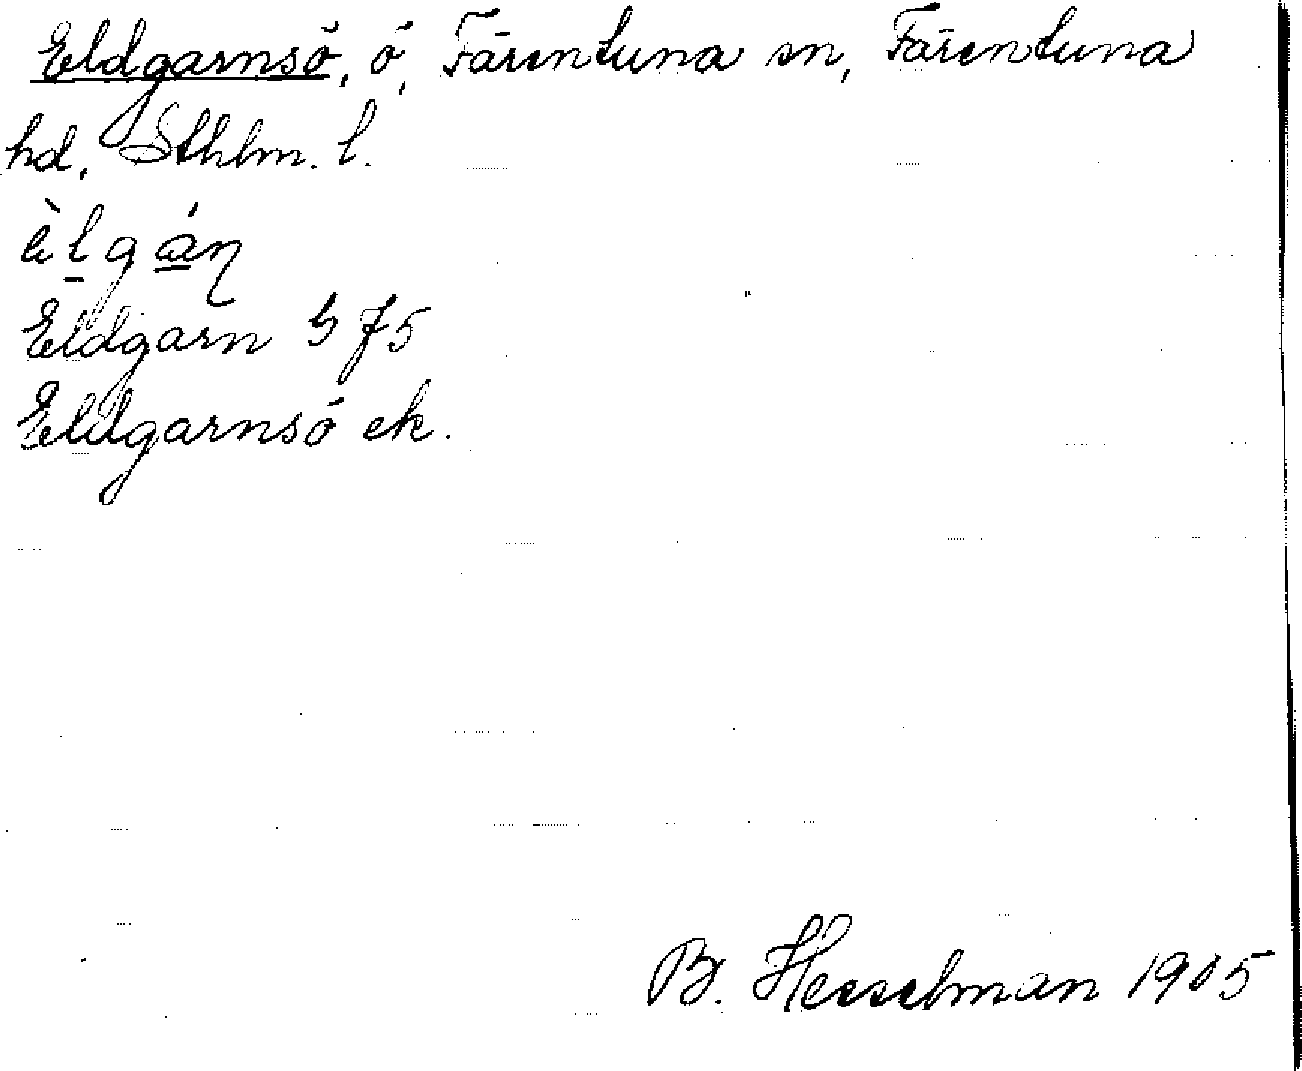 Eldgarnsö, ö, Färentuna sn, Färentuna
hd, Sthlm. l.
èlgáꞃ
Eldgarn G f5
Eldgarnsö ek.
B. Hesselman 1905